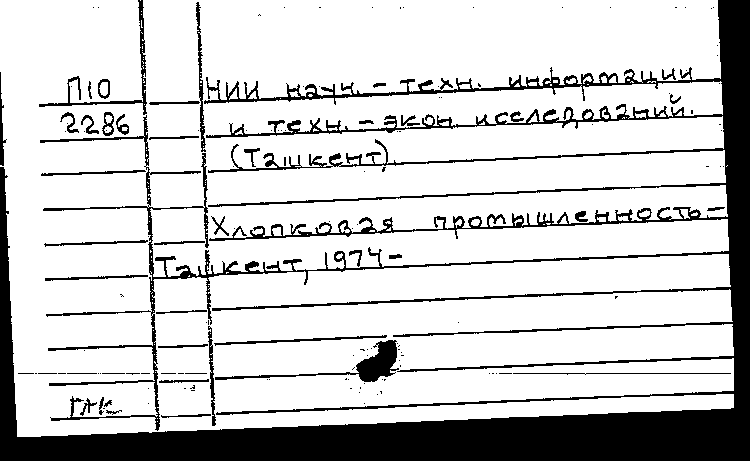 П10 НИИ науч.-техн. информации
2286 и техн.-экон. исследований.
(Ташкент).
Хлопковая промышленность-
Ташкент, 1974-
ГЖК